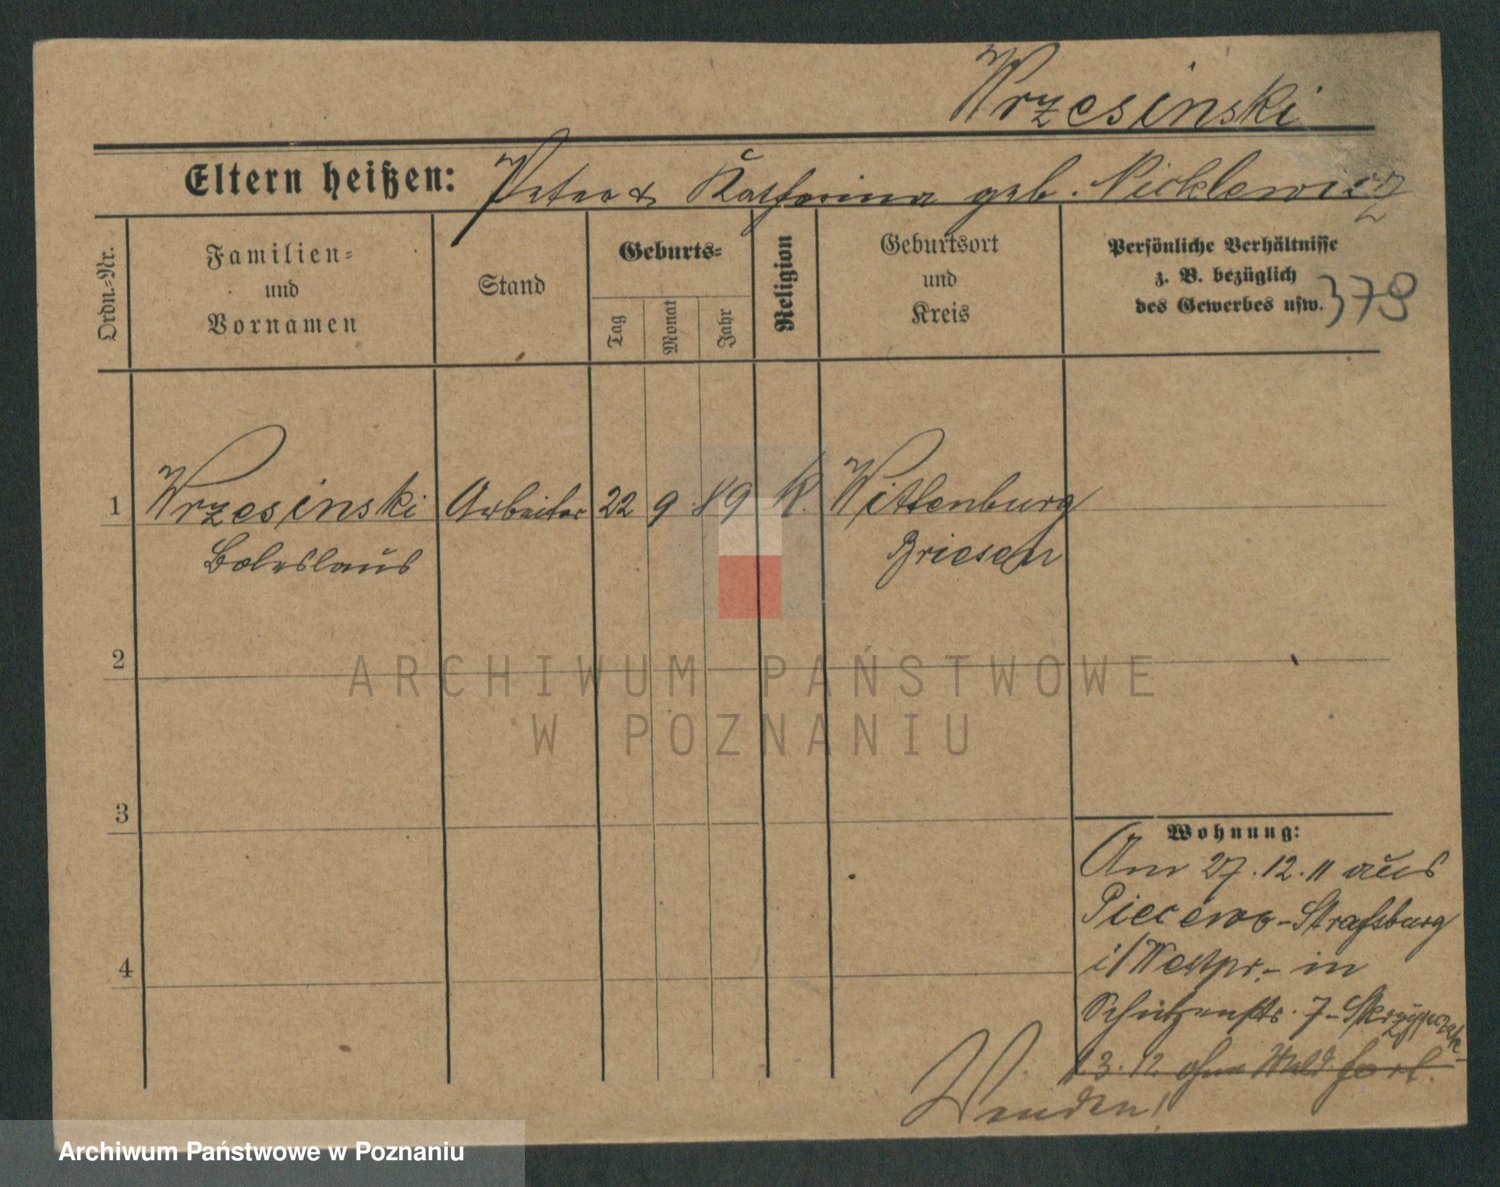 Wrzesinski
Eltern heißen: Peter & Katharina geb. Nicklewicz
Ordn.-Nr.
Familien-
und
Vornamen
Stand
Geburts-
Tag
Monat
Jahr
Religion
Geburtsort
und
Kreis
Persönliche Verhältnisse
z. B. bezüglich
des Gewerbes usw.
378
1 Wrzesinski Arbeiter 22 9 89 K. Wittenburg
Boleslaus Briesen
2
ARCHIWUM PAŃSTWOWE
W POZNANIU
3
Wohnung:
Am 27.12.11 aus
Piecewo-Strasburg
i/Westpr. - in
4
Schützenstr. 7 - Skrzypczak
3.12 ohne Meld fort.
Wenden!
Archiwum Państwowe w Poznaniu